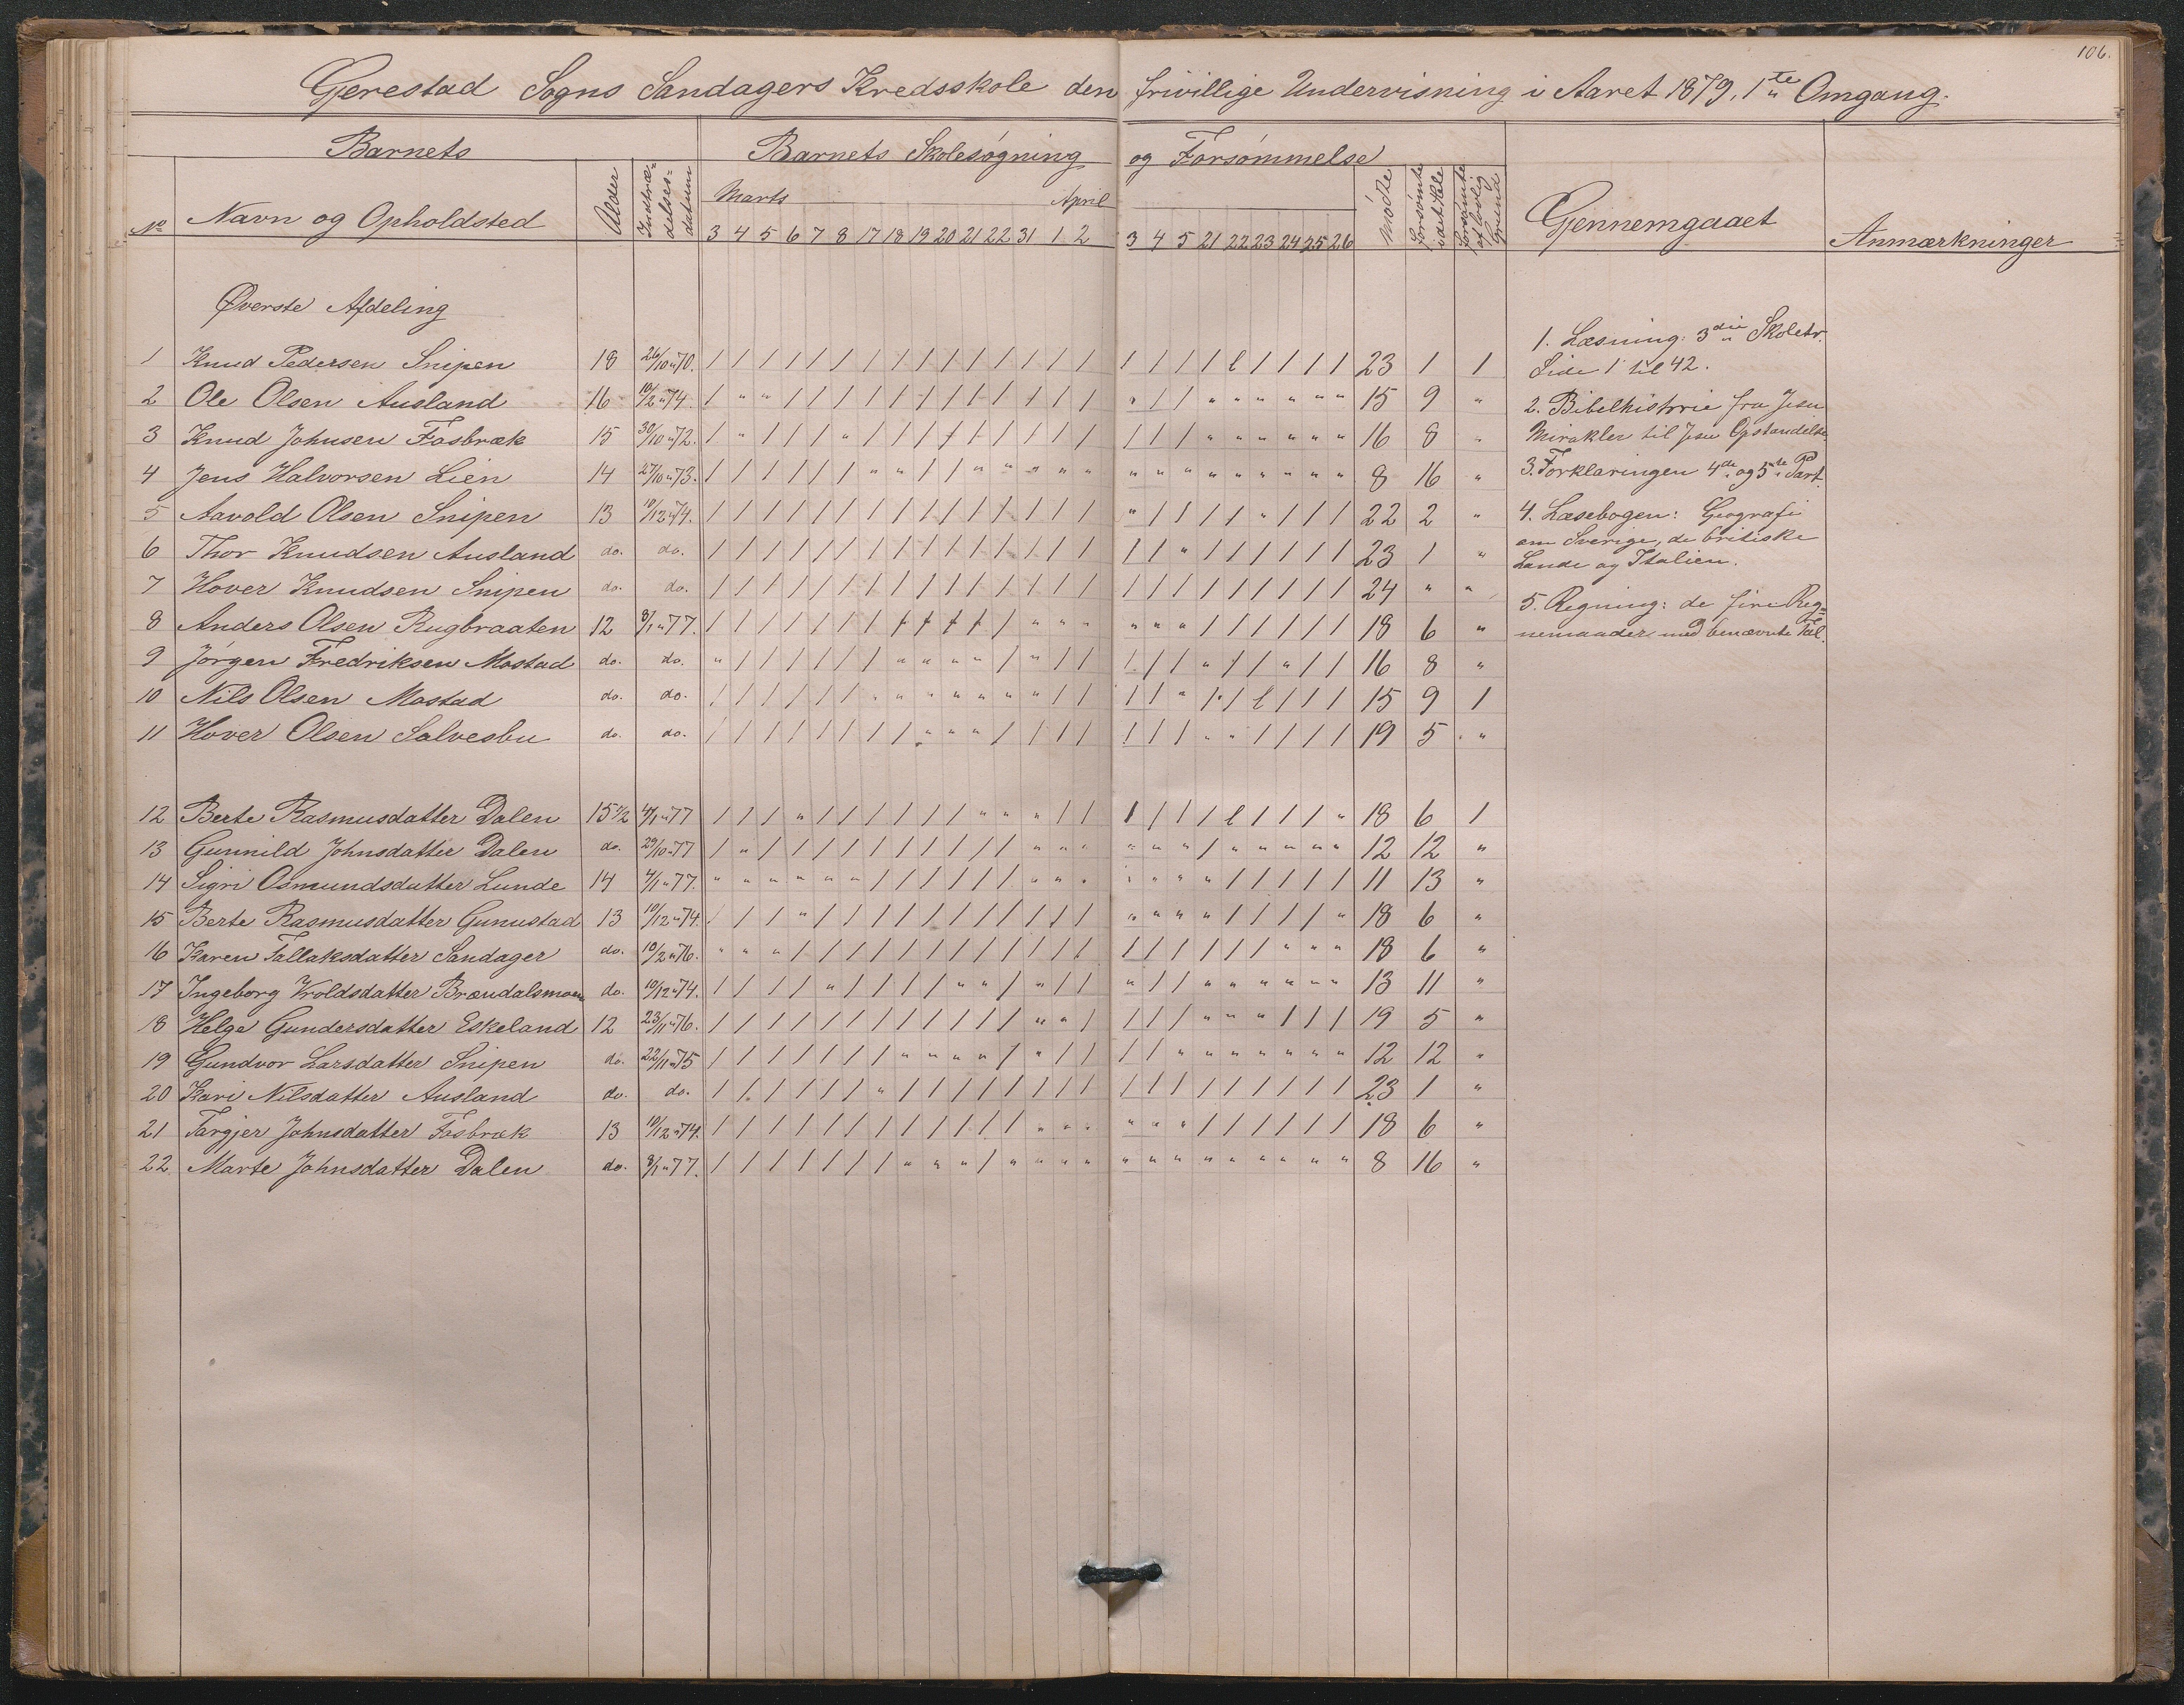 106.
Gjerestad Sogns Sandagers Kredsskole den frivillige Undervisning i Aaret 1879, 1ste Omgang.
Barnets Barnets Skolesøgning og Forsømmelse
No Navn og Opholdsted Alder Indtrædelses-datum Marts April Mødte Forsømte i det Hele Forsømte af lovlig Grund Gjennemgaaet Anmærkninger
3 4 5 6 7 8 17 18 19 20 21 22 31 1 2 3 4 5 21 22 23 24 25 26
Øverste Afdeling
1 Knud Pedersen Snipen 18 26/10 " 70. / / / / / / / / / / / / / / / / / / / l / / / / 23 1 1
2 Ole Olsen Ausland 16 10/2 " 74. / " " / / / / / / / / / / / / " / / " " " " " " 15 9 "
3 Knud Johnsen Fosbræk 15 30/10 " 72. / " / / / " / / / / / / / / / / / / " " " " " " 16 8 "
4 Jens Halvorsen Lien 14 27/10 " 73. / / / / / / " " / / " " " " " " " " " " " " " " 8 16 "
5 Aavold Olsen Snipen 13 10/12 " 74. / / / / / / / / / / / / / / / " / / / / " / / / 22 2 "
6 Thor Knudsen Ausland do. do. / / / / / / / / / / / / / / / / / " / / / / / / 23 1 "
7 Hover Knudsen Snipen do. do. / / / / / / / / / / / / / / / / / / / / / / / / 24 " "
8 Anders Olsen Rugbraaten 12 8/1 " 77. / / / / / / / / / / / / " " " " " " / / / / / / 18 6 "
9 Jørgen Fredriksen Mostad do. do. " / / / / / / " " " " / " / / / / / " / / " / / 16 8 "
10 Nils Olsen Mostad do. do. / / / / / / " " " " " " " / / / / " / / l / / / 15 9 1
11 Hover Olsen Salvesbu do. do. / / / / / / / / " " " / / / / / / / " " / / / / 19 5 "
12 Berte Rasmusdatter Dalen 15 1/2 4/1 " 77 / / / " / / / / / / " " " / / / / / / l / / / " 18 6 1
13 Gunnild Johnsdatter Dalen do. 29/10 " 77 / " / / / / / / / / / / " " " " " " / " " " " " 12 12 "
14 Sigri Osmundsdatter Lunde 14 4/1 " 77. " " " " " " / / / / / / " " " " " " " / / / / / 11 13 "
15 Berte Rasmusdatter Gunustad 13 10/12 " 74. / / / " / / / / / / / / / / / " " " " / / / / " 18 6 "
16 Karen Tallaksdatter Sandager do. 10/2 " 76. " " " / / / / / / / / / / / / / / / / / / " " " 18 6 "
17 Ingeborg Vroldsdatter Brændalsmoen do. 10/12 " 74. / / / / " / / / / " " / " / / " / / " " " " " " 13 11 "
18 Helge Gundersdatter Eskeland 12 23/11 " 76. / / / / / / / / / / / / " " / / / / " " " / / / 19 5 "
19 Gundvor Larsdatter Snipen do. 22/11 " 75 / / / / / / / " " " " / " / / / / " " " " " " " 12 12 "
20 Kari Nilsdatter Ausland do. do. / / / / / / " / / / / / / / / / / / / / / / / / 23 1 "
21 Targjer Johnsdatter Fosbræk 13 10/12 " 74. / / / / / / / / / / / / " " " " " " / / / / / / 18 6 "
22 Marte Johnsdatter Dalen do. 8/1 " 77. / / / / / / / " " " / " " " " " " " " " " " " " 8 16 "
1. Læsning: 3die Skoletr.
Side 1 til 42.
2. Bibelhistorie fra Jesu
Mirakler til Jesu Opstandelse,
3. Forklaringen 4de og 5te Part.
4. Læsebogen: Geografi
om Sverige, de britiske
Lande og Italien.
5. Regning: de fire Reg=
nemaader med benævnte Tal.